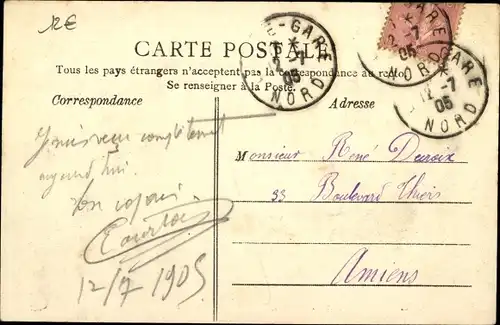 12€
CARTE POSTALE
Tous les pays étrangers n'acceptent pas la correspondance au recto.
Se renseigner à la Poste.
Correspondance
Adresse
-GARE
12 -7
05
NORD
GARE
12 -7
05
NORD
GARE
12 -7
05
NORD
complètement
aujourd'hui.
12/7 1905
Monsieur René
33 Boulevard Thiers
Amiens